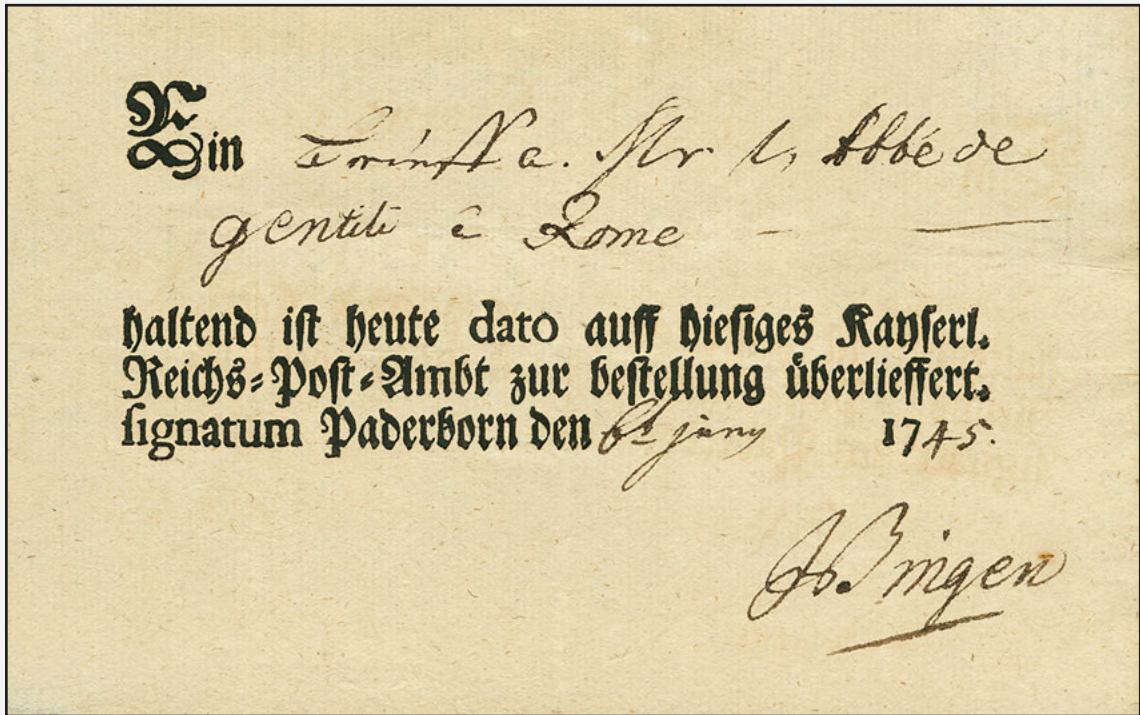 Ein Brieff a. Mr l'Abbé de
gentili à Rome
haltend ist heute dato auff hiesiges Kayserl.
Reichs-Post-Ambt zur bestellung überlieffert.
signatum Paderborn den 6t juny 1745.
Bingen